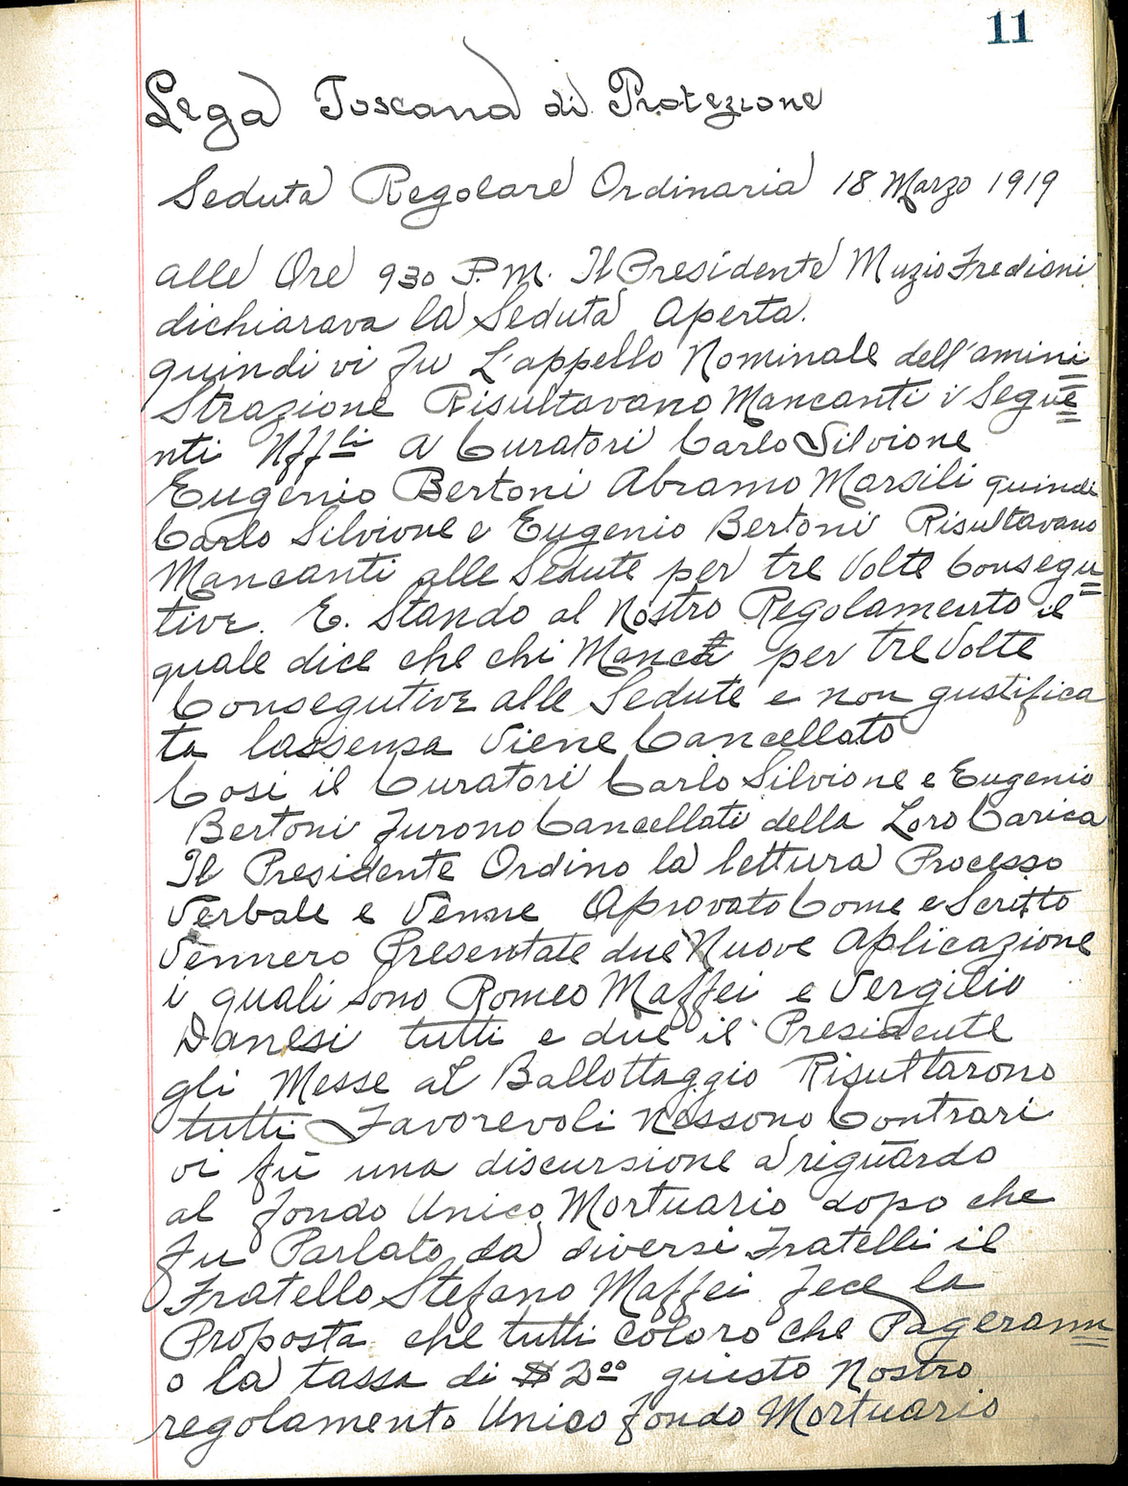 11
Lega Toscana di Protezione
Seduta Regolare Ordinaria 18 Marzo 1919
alle Ore 930 P.M. Il Presidente Muzio Frediani
dichiarava la Seduta Aperta.
quindi vi fu L'appello Nominale dell'amini
Strazione Risultavano Mancanti i Segue
nti Uff.li A Curatori Carlo Silvione
Eugenio Bertoni Abramo Marsili quindi
Carlo Silvione e Eugenio Bertoni Risultavano
Mancanti alle Sedute per tre Volte Consegu
tive. E. Stando al Nostro Regolamento il
quale dice che chi Manca per tre Volte
Consegutive alle Sedute e non gustifica
ta lassensa Viene Cancellato
Cosi il Curatori Carlo Silvione e Eugenio
Bertoni furono Cancellati della Loro Carica
Il Presidente Ordino la lettura Processo
Verbale e Venne Aprovato Come e Scritto
Vennero Presentate due Nuove Aplicazione
i quali Sono Romeo Maffei e Vergilio
Danesi tutti e due il Presidente
gli Messe al Ballottaggio Risultarono
tutti Favorevoli Nessono Contrari
vi fu una discursione a riguardo
al fondo Unico Mortuario dopo che
fu Parlato da diversi Fratelli il
Fratello Stefano Maffei fece la
Proposta che tutti coloro che Pagerann
o la tassa di $ 2oo questo Nostro
regolamento Unico fondo Mortuario